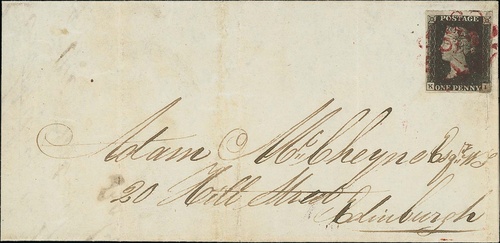 POSTAGE
ONE PENNY
Adam McCheyne Esqr. W.S.
20 Hill Street
Edinburgh